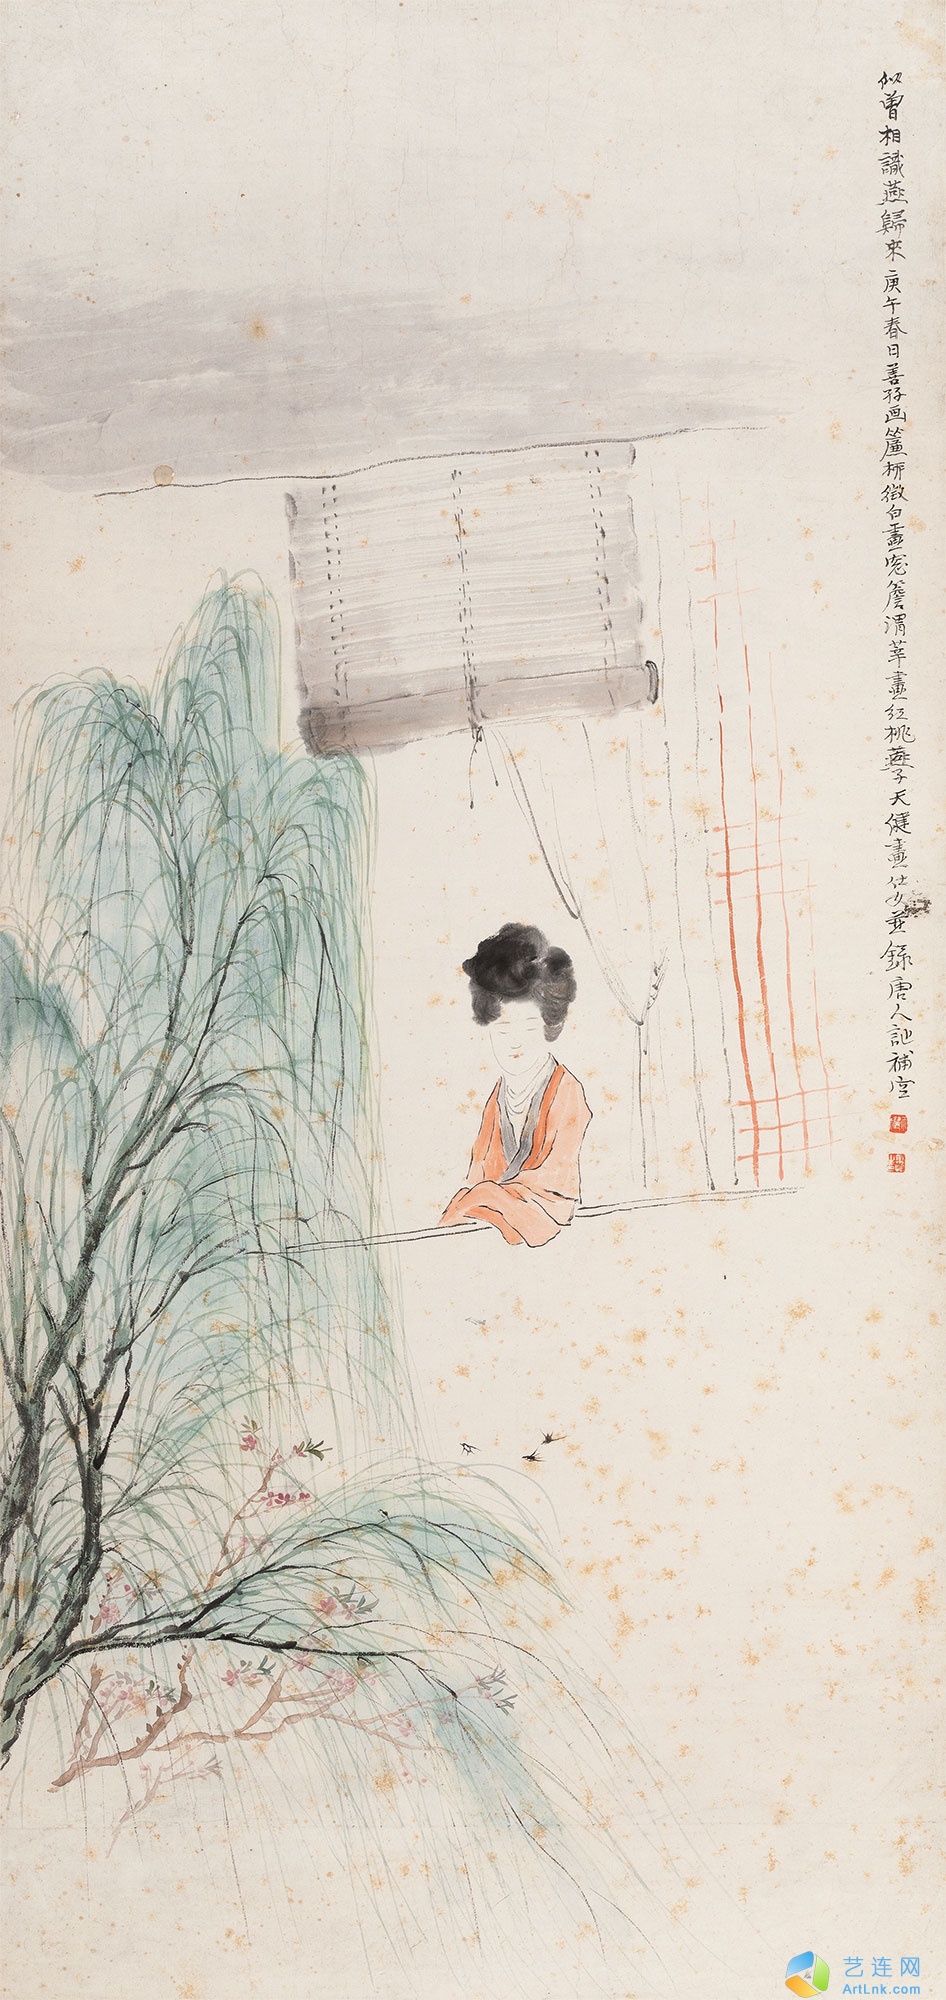 似曾相識燕歸來庚午春日善孖画簾柳徵白畫窓簷渭莘畫紅桃燕子天健畫仕女並錄唐人記補空
艺连网
ArtLnk.com